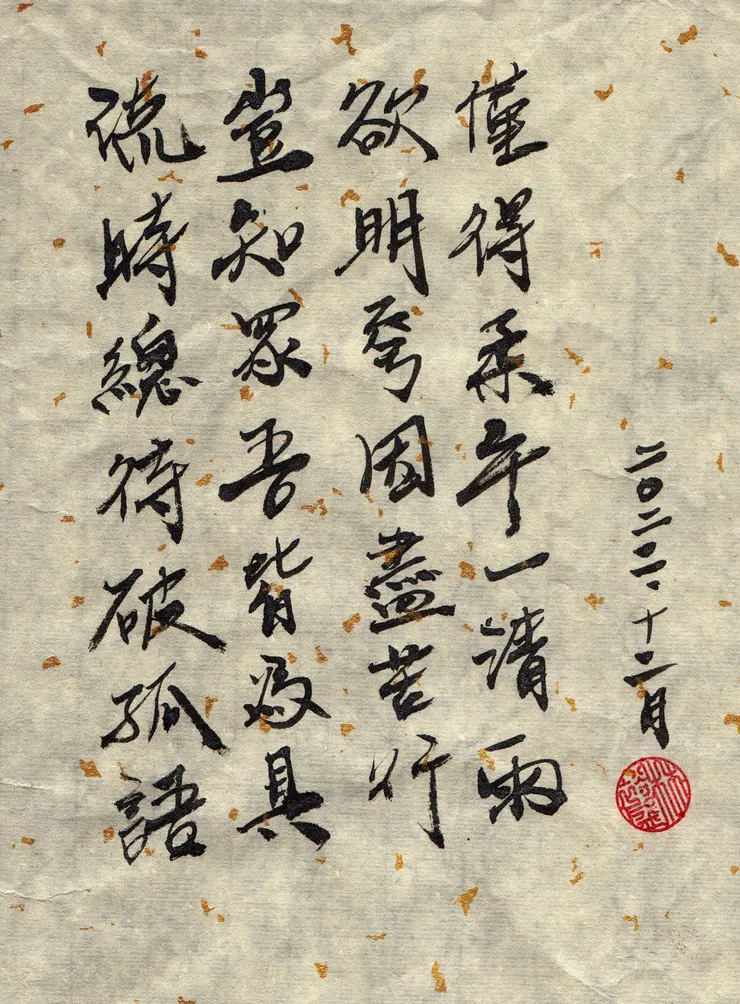 硫時總待破孤語
豈知眾吾皆為具
欲明因盡苦行
僅得柔午一清雨
二〇二二、十二月